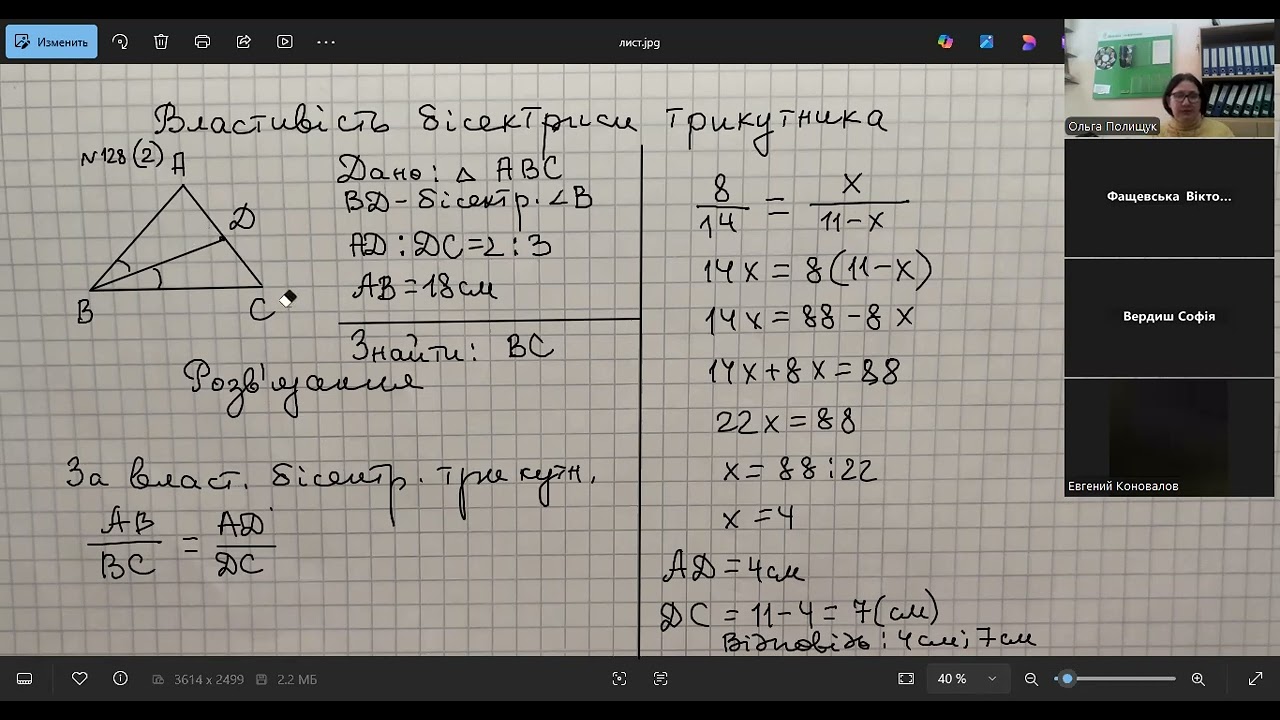 Изменить
лист.jpg
Властивість бісектриси трикутника
N128(2)
A
D
B
C
Дано: △ ABC
BD - бісектр. ∠B
AD : DC = 2 : 3
AB = 18 см
Знайти: BC
Розв'язання
За власт. бісектр. трикутн.
AB/BC = AD/DC
8/14 = x/11-x
14x = 8(11-x)
14x = 88 - 8x
14x + 8x = 88
22x = 88
x = 88 : 22
x = 4
AD = 4 см
DC = 11 - 4 = 7(см)
Відповідь: 4 см; 7 см
Ольга Полищук
Фащевська Вікто...
Вердиш Софія
Евгений Коновалов
3614 x 2499
2.2 МБ
40 %